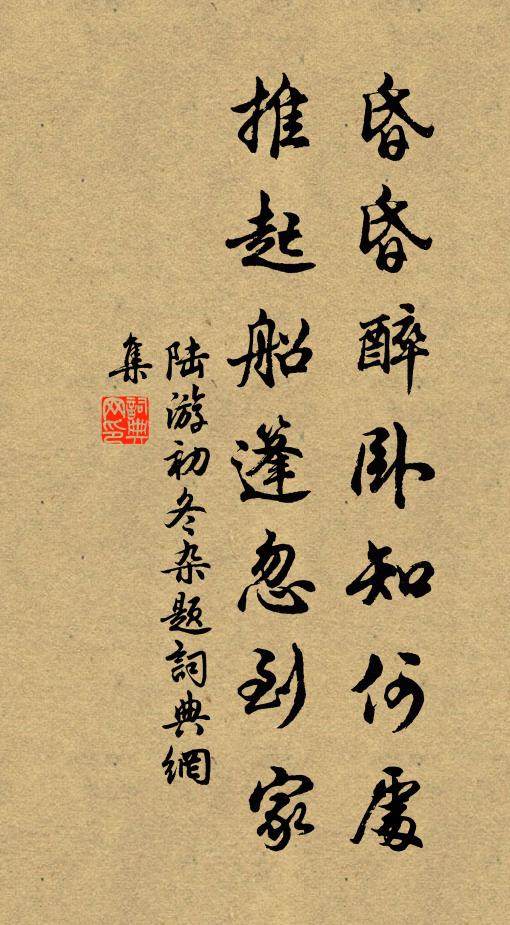 昏昏醉卧知何處
推起船篷忽到家
陆游初冬杂题詞典網
集
詞典网印